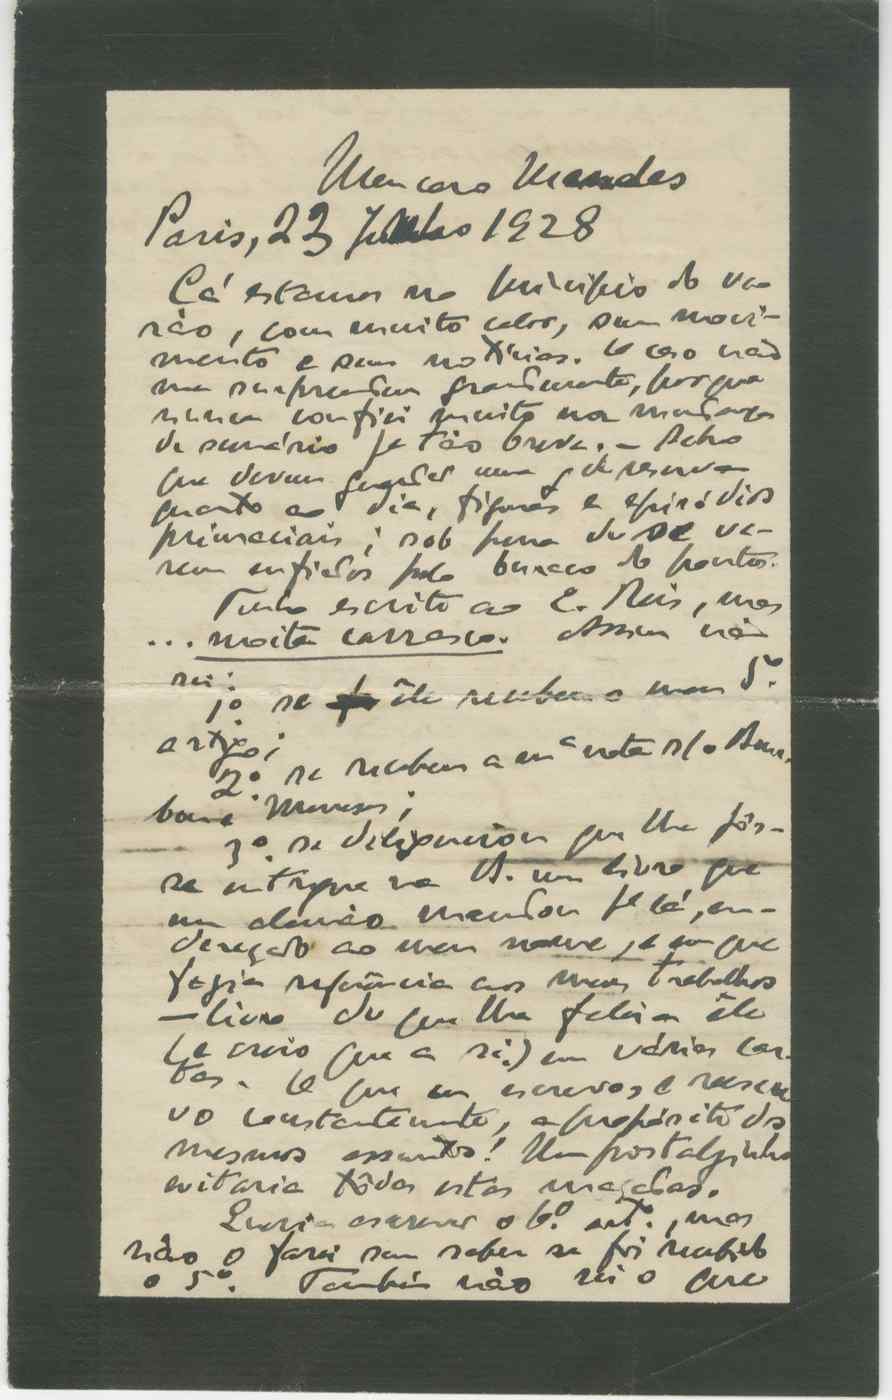 Meu caro Mendes
Paris, 23 Julho 1928
Cá estamos no princípio do ve-
rão, com muito calor, sem movi-
mento e sem notícias. O caso não
me surpreendeu grandemente, porque
nunca confiei muito na mudança
de cenário já tão breve. – Acho
que devem guardar uma gde reserva
quanto ao dia, figuras e episódios
primaciais; sob pena de se ve-
rem enfiados pelo buraco do ponto.
Tenho escrito ao C. Reis, mas
... moita carrasco. Assim não
sei:
1º se êle recebeu o meu 5º
artigo;
2º. se recebeu a mª nota s/ o
Meneses;
3º. se diligenciou que lhe fôs-
se entregue na A. um livro que
um alemão mandou pª lá, en-
dereçado ao meu nome, e em que
fazia referência aos meus trabalhos
– livro de que lhe falei a êle
(e creio que a si?) em várias car-
tas. O que eu escrevo e reescre
vo constantemente, a propósito dos
mesmos assuntos! Um postalzinho
evitaria tôdas estas maçadas.
Queria escrever o 6º artº., mas
não o farei sem saber se foi recebido
o 5º. Também não sei o que